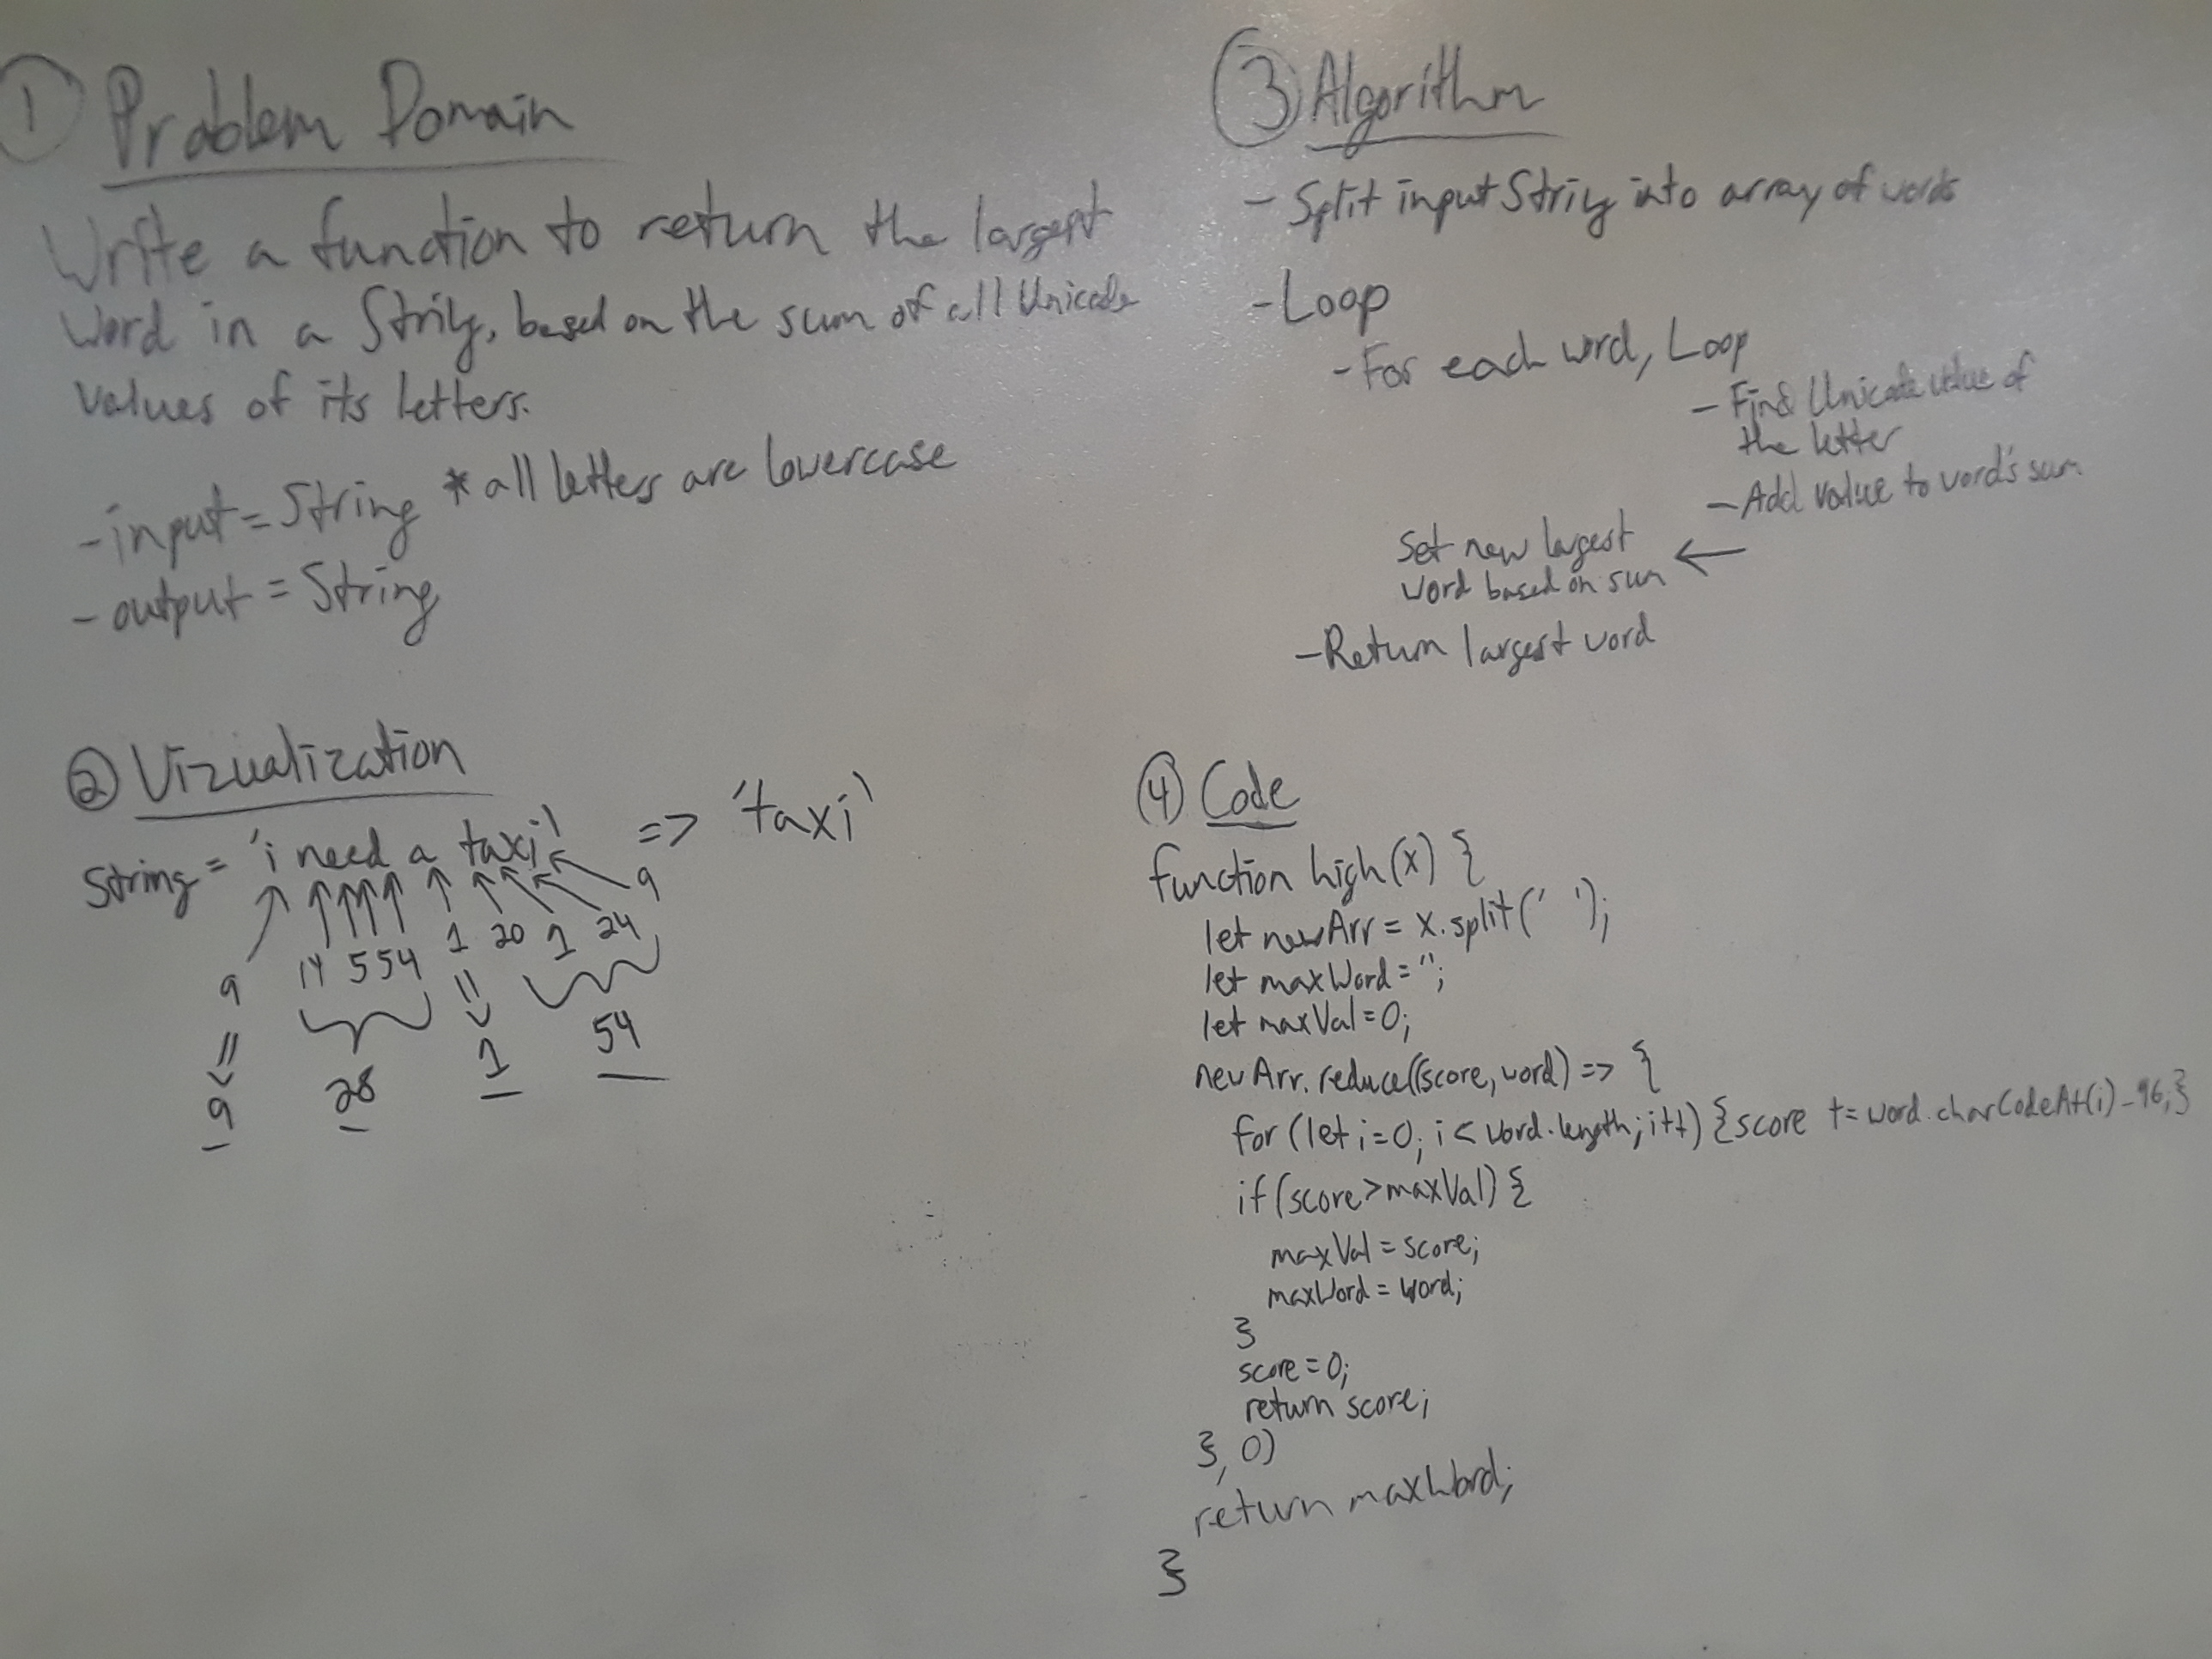 ① Problem Domain
Write a function to return the largest
word in a String, based on the sum of all Unicode
values of its letters.
-input = String * all letters are lowercase
-output = String
② Vizualization
String = 'i need a taxi' => 'taxi'
9
14 5 5 4 1 20 1 24
9
28 1 54
9
③ Algorithm
- Split input String into array of words
- Loop
- For each word, Loop
- Find Unicode value of
the letter
- Add value to word's sum
Set new largest ←
word based on sum
- Return largest word
④ Code
function high(x) {
let newArr = x.split(' ');
let maxWord = '';
let maxVal = 0;
newArr.reduce((score, word) => {
for (let i=0; i < word.length; i++) {score += word.charCodeAt(i) - 96;}
if (score > maxVal) {
maxVal = score;
maxWord = word;
}
score = 0;
return score;
}, 0)
return maxWord;
}